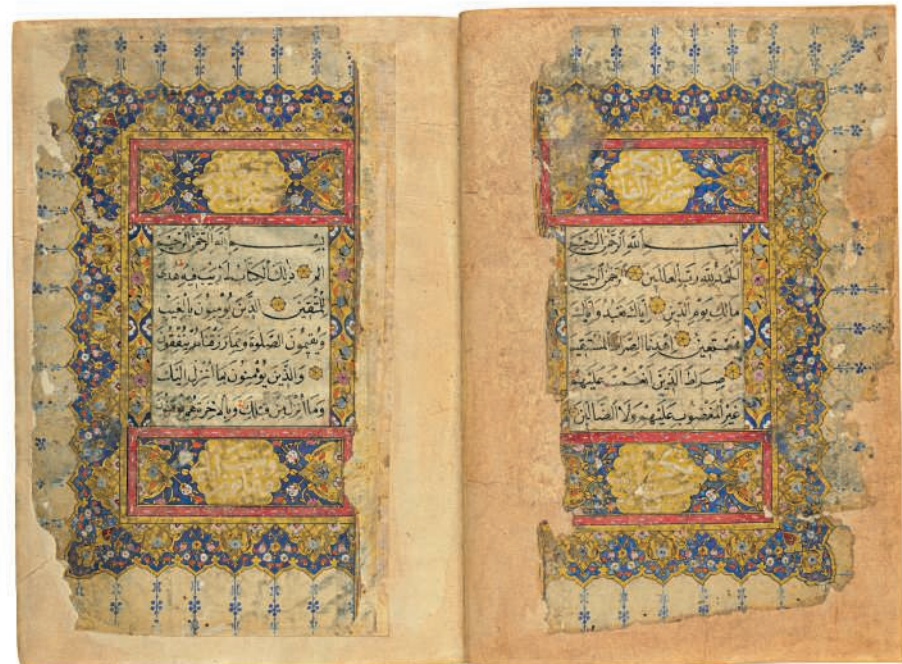 بسم الله الرحمن الرحيم
الحمد لله رب العالمين الرحمن الرحيم
مالك يوم الدين اياك نعبد واياك
نستعين اهدنا الصراط المستقيم
صراط الذين انعمت عليهم
غير المغضوب عليهم ولا الضالين
بسم الله الرحمن الرحيم
الم ذلك الكتاب لا ريب فيه هدى
للمتقين الذين يؤمنون بالغيب
ويقيمون الصلوة ومما رزقناهم ينفقون
والذين يؤمنون بما انزل اليك
وما انزل من قبلك وبالاخرة هم يوقنون